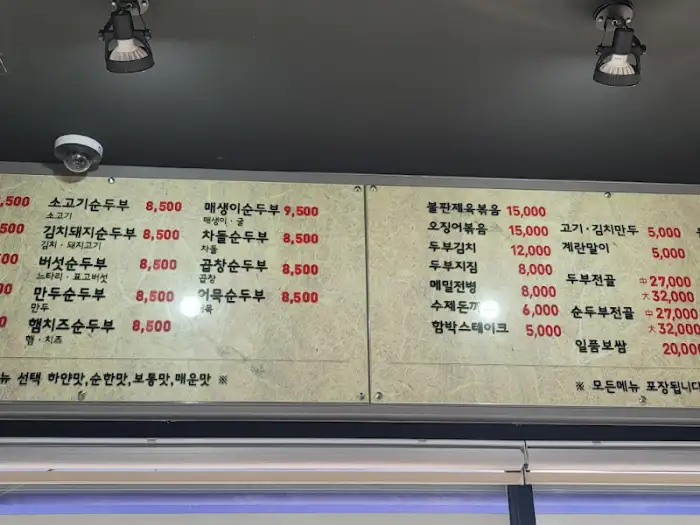 ,500
소고기순두부 8,500
소고기
매생이순두부 9,500
매생이 · 굴
500
김치돼지순두부 8,500
김치 · 돼지고기
차돌순두부 8,500
차돌
버섯순두부 8,500
느타리 · 표고버섯
곱창순두부 8,500
곱창
만두순두부 8,500
만두
어묵순두부 8,500
햄치즈순두부 8,500
햄 · 치즈
뉴 선택 하얀맛,순한맛,보통맛,매운맛 ※
불판제육볶음 15,000
오징어볶음 15,000
두부김치 12,000
두부지짐 8,000
메밀전병 8,000
수제돈까 6,000
함박스테이크 5,000
고기 · 김치만두 5,000
계란말이 5,000
두부전골 中 27,000
大 32,000
순두부전골 中 27,000
大 32,000
일품보쌈 20,000
※ 모든메뉴 포장됩니다